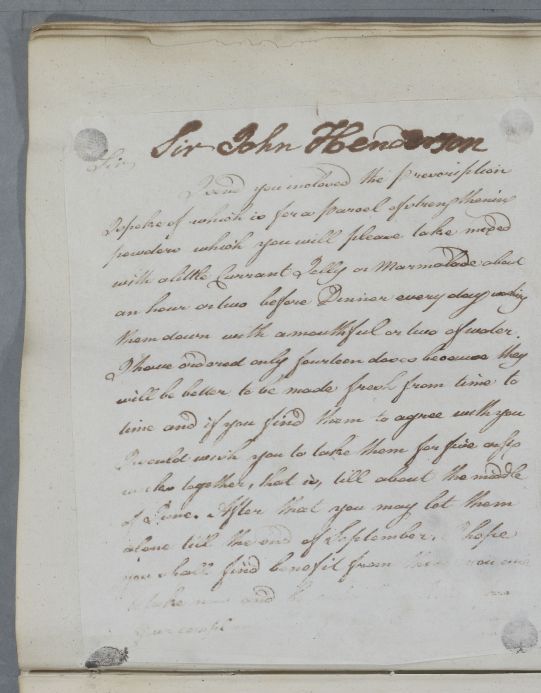 Sir John Henderson
Sir,
I send you inclosed the prescription
I spoke of which is for a parcel of strengthening
powders which you will please take mixed
with a little Currant Jelly or Marmalade about
an hour or two before Dinner every day, washing
them down with a mouthful or two of water.
I have ordered only fourteen doses because they
will be better to be made fresh from time to
time and if you find them to agree with you
I would wish you to take them for five or six
weeks together, that is, till about the middle
of June. After that you may let them
alone till the end of September. I hope
you shall find benefit from them you
take and
your compl